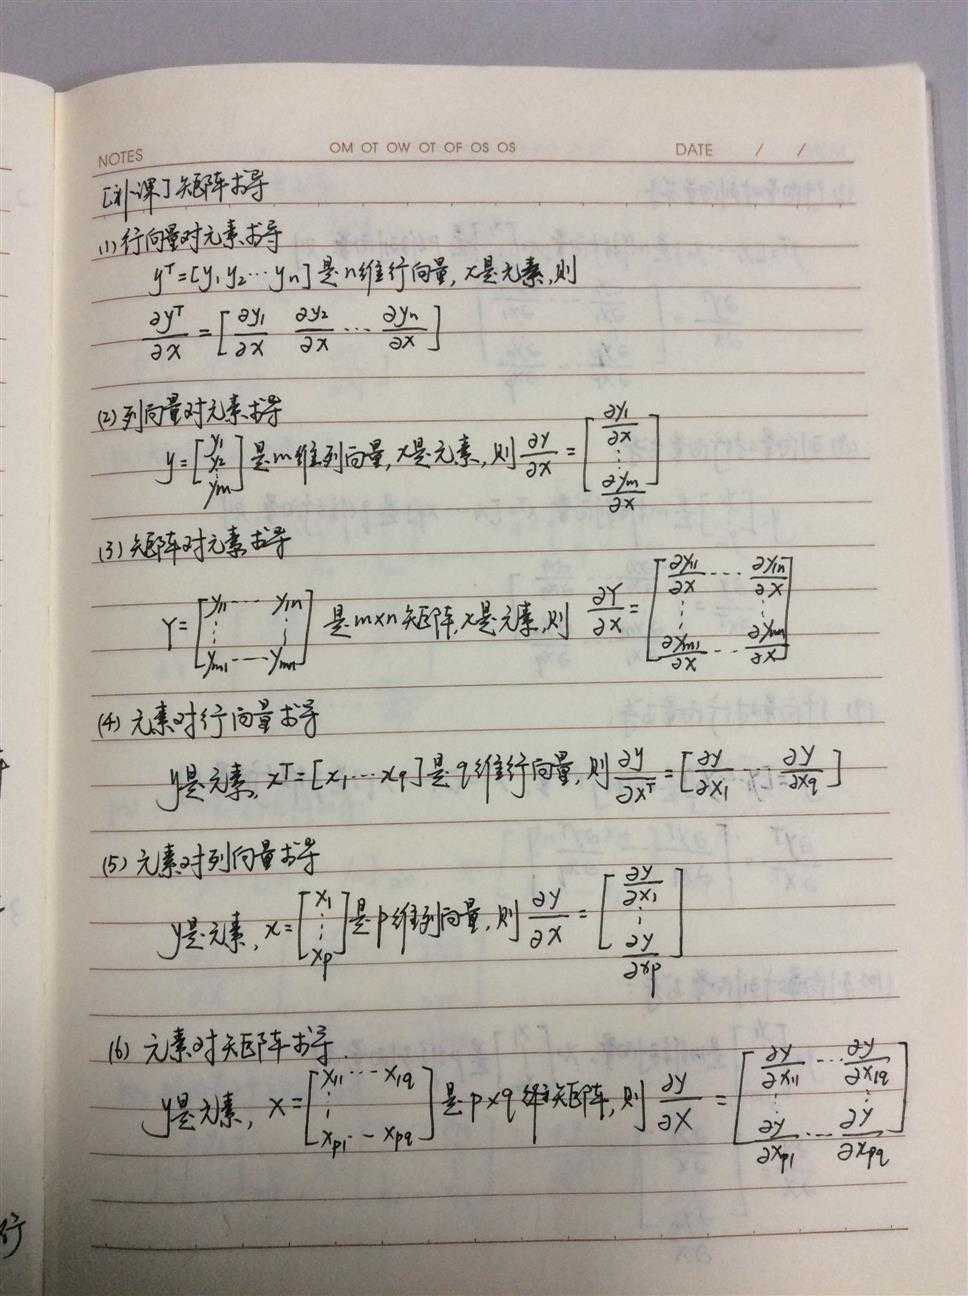 NOTES OM OT OW OT OF OS OS DATE / /
[补课]矩阵求导
(1) 行向量对元素求导
yᵀ=[y₁ y₂ ⋯ yₙ]是n维行向量, x是元素, 则
∂yᵀ/∂x = [∂y₁/∂x ∂y₂/∂x ⋯ ∂yₙ/∂x]
(2) 列向量对元素求导
y=[y₁ y₂ ⋮ yₘ]是m维列向量, x是元素, 则 ∂y/∂x = [∂y₁/∂x ⋮ ∂yₘ/∂x]
(3) 矩阵对元素求导
Y=[y₁₁ ⋯ y₁ₙ ⋮ ⋮ yₘ₁ ⋯ yₘₙ] 是m×n矩阵, x是元素, 则 ∂Y/∂x = [∂y₁₁/∂x ⋯ ∂y₁ₙ/∂x ⋮ ⋮ ∂yₘ₁/∂x ⋯ ∂yₘₙ/∂x]
(4) 元素对行向量求导
y是元素, xᵀ=[x₁ ⋯ x_q]是q维行向量, 则 ∂y/∂xᵀ = [∂y/∂x₁ ⋯ ∂y/∂x_q]
(5) 元素对列向量求导
y是元素, x=[x₁ ⋮ x_p]是p维列向量, 则 ∂y/∂x = [∂y/∂x₁ ⋮ ∂y/∂x_p]
(6) 元素对矩阵求导.
y是元素, X=[x₁₁ ⋯ x₁q ⋮ x_p₁ ⋯ x_pq]是p×q维矩阵, 则 ∂y/∂X = [∂y/∂x₁₁ ⋯ ∂y/∂x₁q ⋮ ⋮ ∂y/∂x_p₁ ⋯ ∂y/∂x_pq]
行